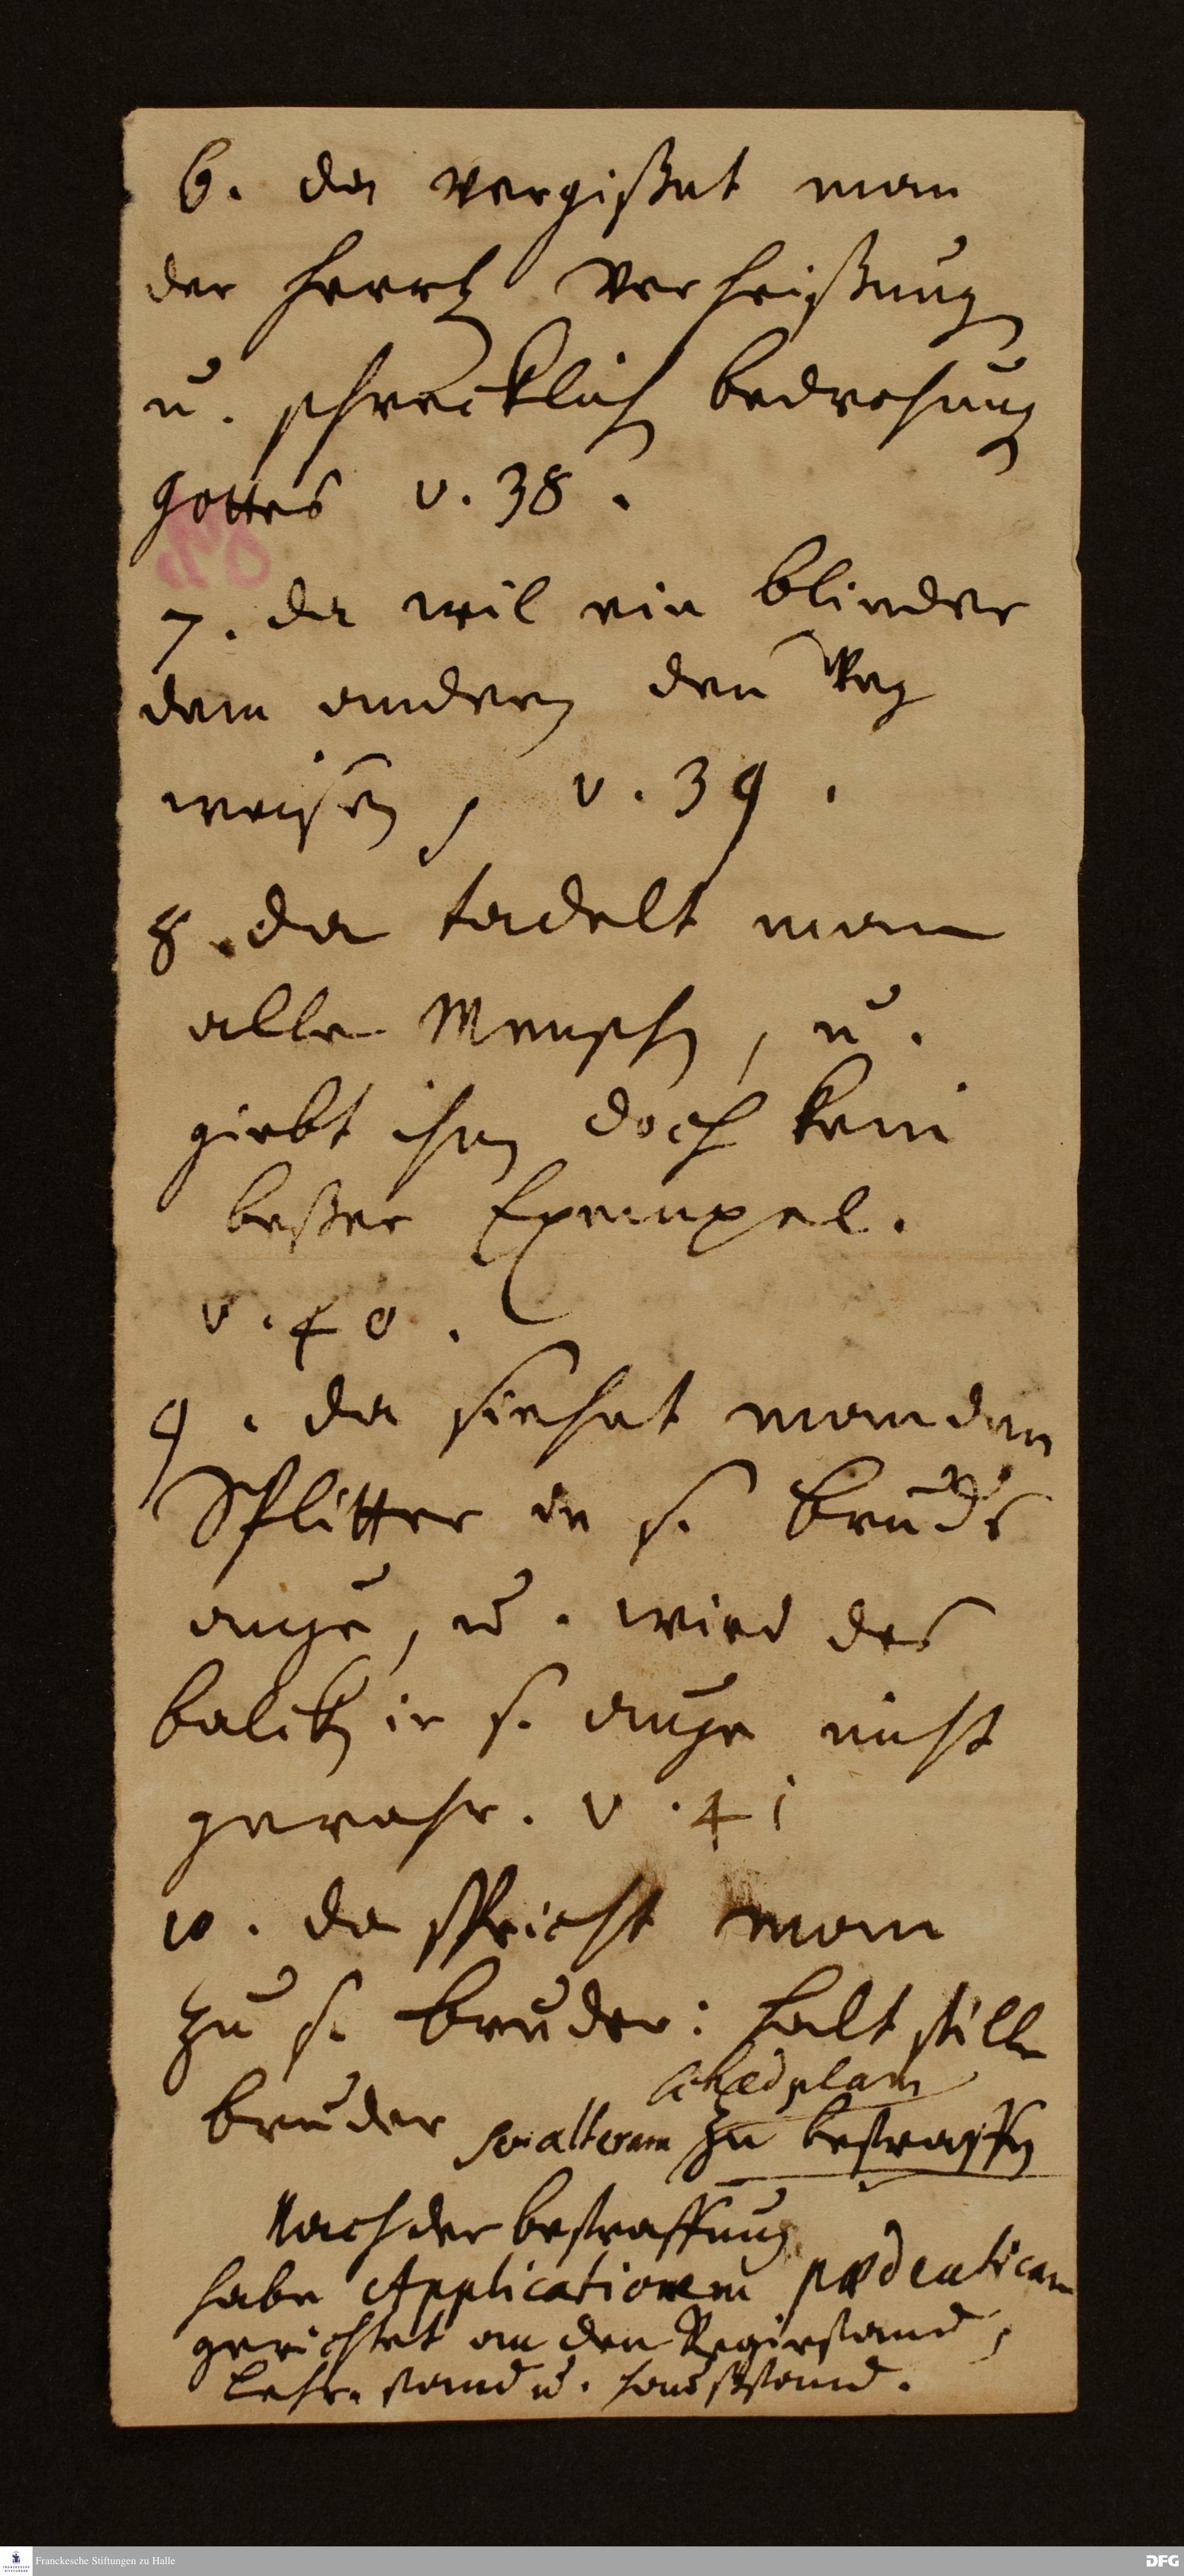 6. da vergißet man
der herrl Verheißung
u. schrecklich bedrohung
Gottes v. 38.
7. da wil ein blinder
dem andern den Weg
weisen, v. 39.
8. da tadelt man
alle Menschen, u.
giebt ihnen doch kein
beßer Exempel.
v. 40.
9. da siehet man den
Splitter in s. bruders
auge, u. wird des
balcken in s. auge nicht
gewahr. v. 41
10. da spricht man
zu s. bruder: halt stille
bruder
zu bestraffen
Nach der bestraffung
habe Applicationem pædeuticam
gerichtet an den Regierstand,
Lehrstand u. haußstand.
Franckesche Stiftungen zu Halle
DFG